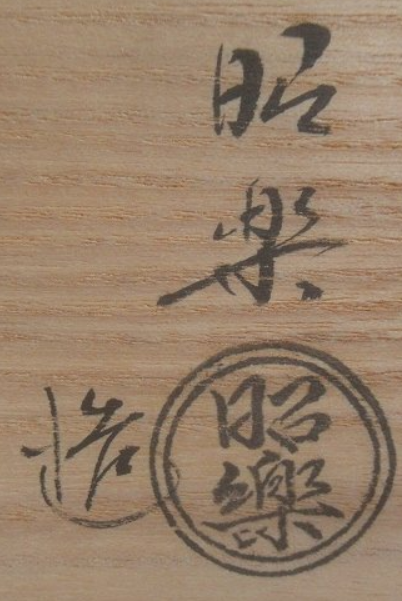 昭楽
造
昭樂